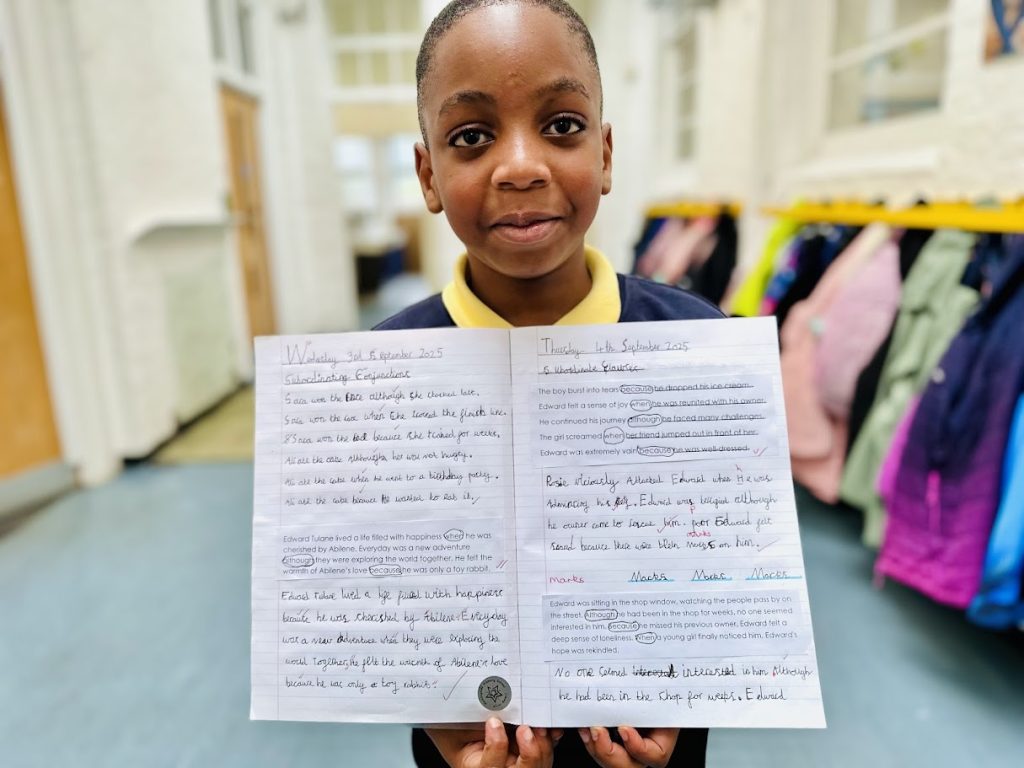 Wednesday 3rd September 2025
Subordinating Conjunctions
Sara won the race although she started late.
Sara won the race when she crossed the finish line.
Sara won the race because she trained for weeks.
Ali ate the cake although he was not hungry.
Ali ate the cake when he went to a birthday party.
Ali ate the cake because he wanted to eat it.
Edward Tulane lived a life filled with happiness when he was
cherished by Abilene. Everyday was a new adventure
although they were exploring the world together. He felt the
warmth of Abilene's love because he was only a toy rabbit.
Edward Tulane lived a life filled with happiness
because he was cherished by Abilene. Everyday
was a new adventure when they were exploring the
world together, he felt the warmth of Abilene's love
because he was only a toy rabbit.
Thursday 4th September 2025
Subordinate Clauses
The boy burst into tears because he dropped his ice cream.
Edward felt a sense of joy when he was reunited with his owner.
He continued his journey although he faced many challenges.
The girl screamed when her friend jumped out in front of her.
Edward was extremely vain because he was well-dressed.
Rosie viciously Attacked Edward when He was
Admiring his. Edward was although
he owner came to rescue him. poor Edward felt
because there were on him.
marks Marks Marks Marks
Edward was sitting in the shop window, watching the people pass by on
the street. Although he had been in the shop for weeks, no one seemed
interested in him. Because he missed his previous owner, Edward felt a
deep sense of loneliness. When a young girl finally noticed him, Edward's
hope was rekindled.
No one seemed interested in him Although
he had been in the shop for weeks. Edward